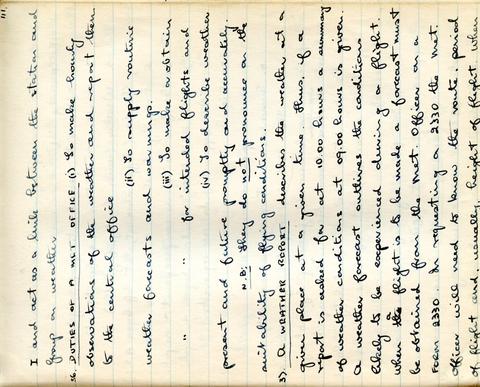 111.
I and act as a link between the station and
group on weather
56. DUTIES OF A MET OFFICE (i) To make hourly
observations of the weather and report them
to the central office
(ii) To supply routine
weather forecasts and warnings.
(iii) To make or obtain
" " for intended flights and
(iv) To describe weather
present and future promptly and accurately.
N.B. They do not pronounce on the
suitability of flying conditions.
A WEATHER REPORT describes the weather at a
given place at a given time. Thus, if a
report is asked for at 10.00 hours a summary
of weather conditions at 09.00 hours is given.
A weather forecast outlines the conditions
likely to be experienced during a flight.
when a flight is to be made a forecast must
be obtained from the Met. Officer on a
Form 2330. In requesting a 2330 the Met.
Officer will need to know the route, period
of flight and, usually, height of flight when